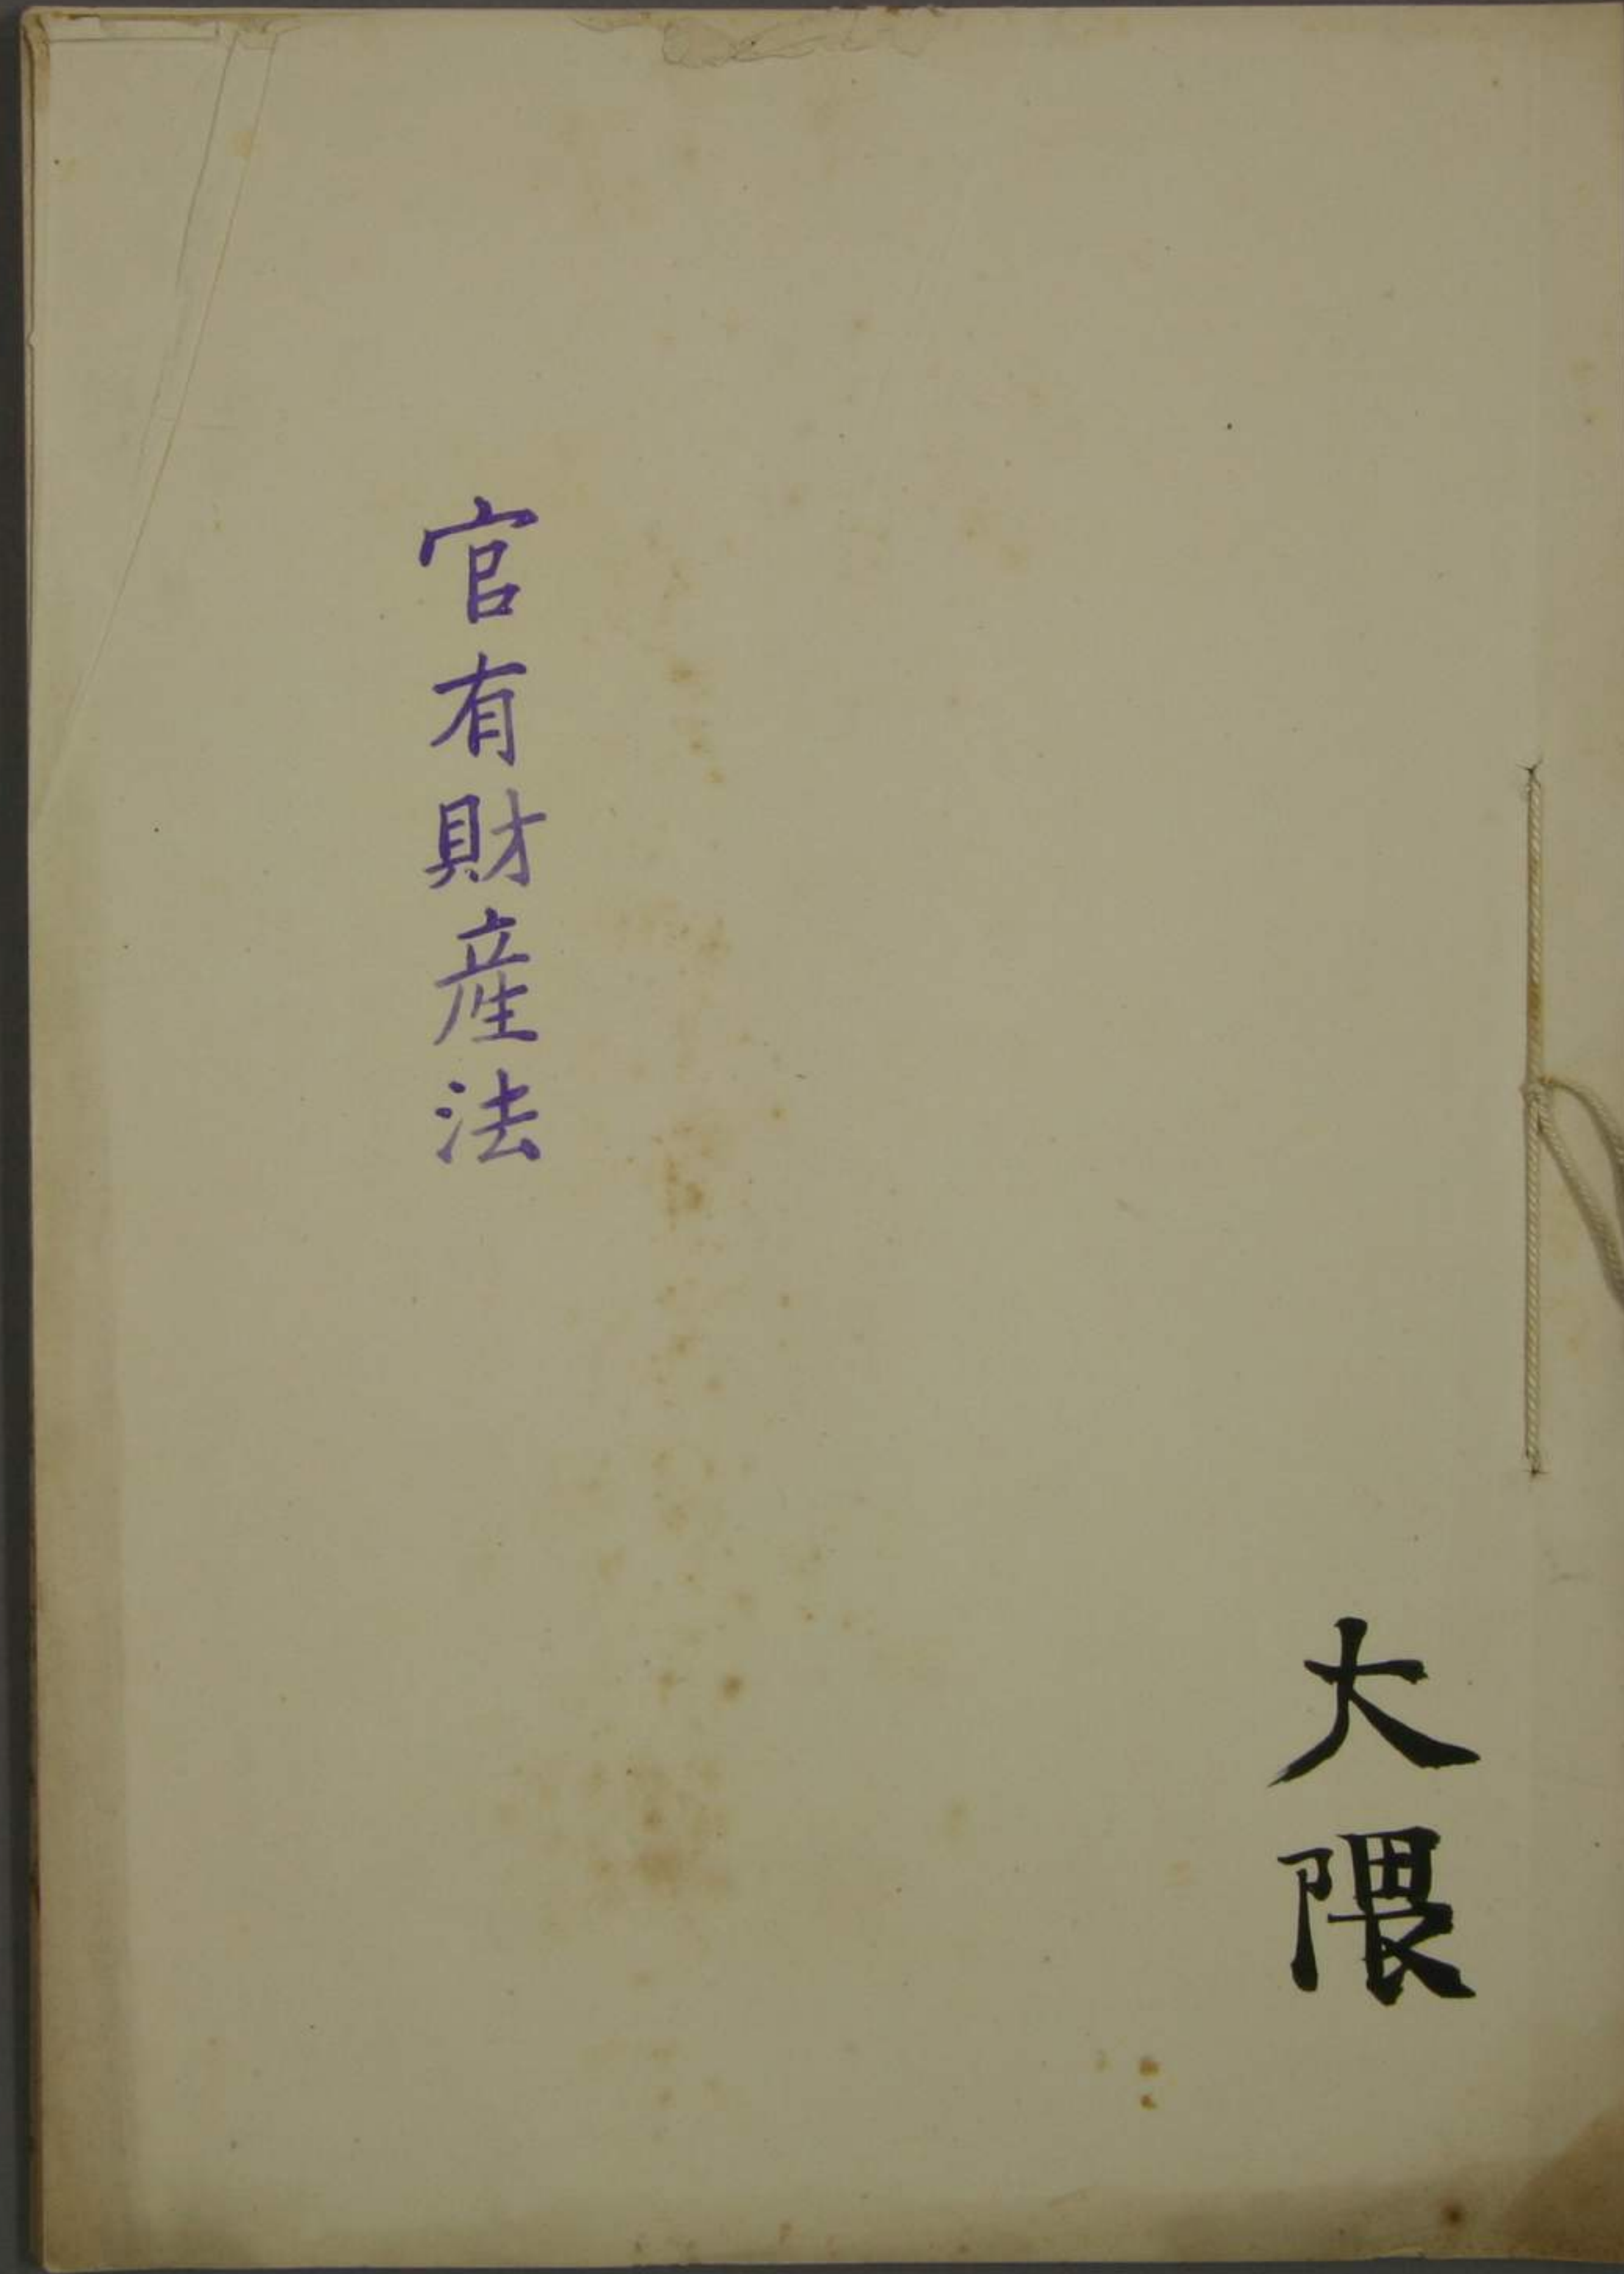 大隈
官有財産法